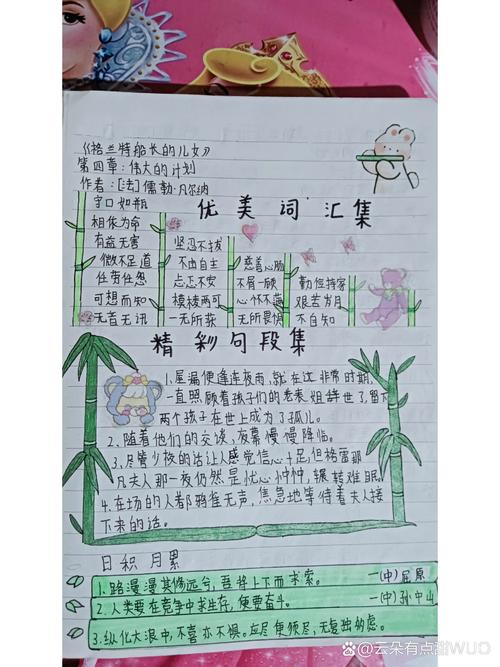 《格兰特船长的儿女》
第四章：伟大的计划
作者：[法]儒勒·凡尔纳
优美词汇集
守口如瓶
相依为命
有益无害
微不足道
任劳任怨
可想而知
无音无讯
坚忍不拔
不由自主
忐忑不安
模棱两可
一无所获
慈善心肠
不屑一顾
心怀不满
无所畏惧
勤俭持家
艰苦岁月
不自知
精彩句段集
1、屋漏便逢连夜雨，就在这非常时期，
一直照顾着孩子们的老表姐辞世了，留下
两个孩子在世上成为了孤儿。
2、随着他们的交谈，夜幕慢慢降临。
3、尽管少校的话让人感觉信心十足，但格雷那
凡夫人那一夜仍然是忧心忡忡，辗转难眠。
4、在场的人都鸦雀无声，焦急地等待着夫人接
下来的话。
日积月累
1、路漫漫其修远兮，吾将上下而求索。 —(中)屈原
2、人类要在竞争中求生存，便要奋斗。 —(中)孙中山
3、纵化大浪中，不喜亦不惧。应尽便须尽，无复独多虑。
云朵有点甜WUO